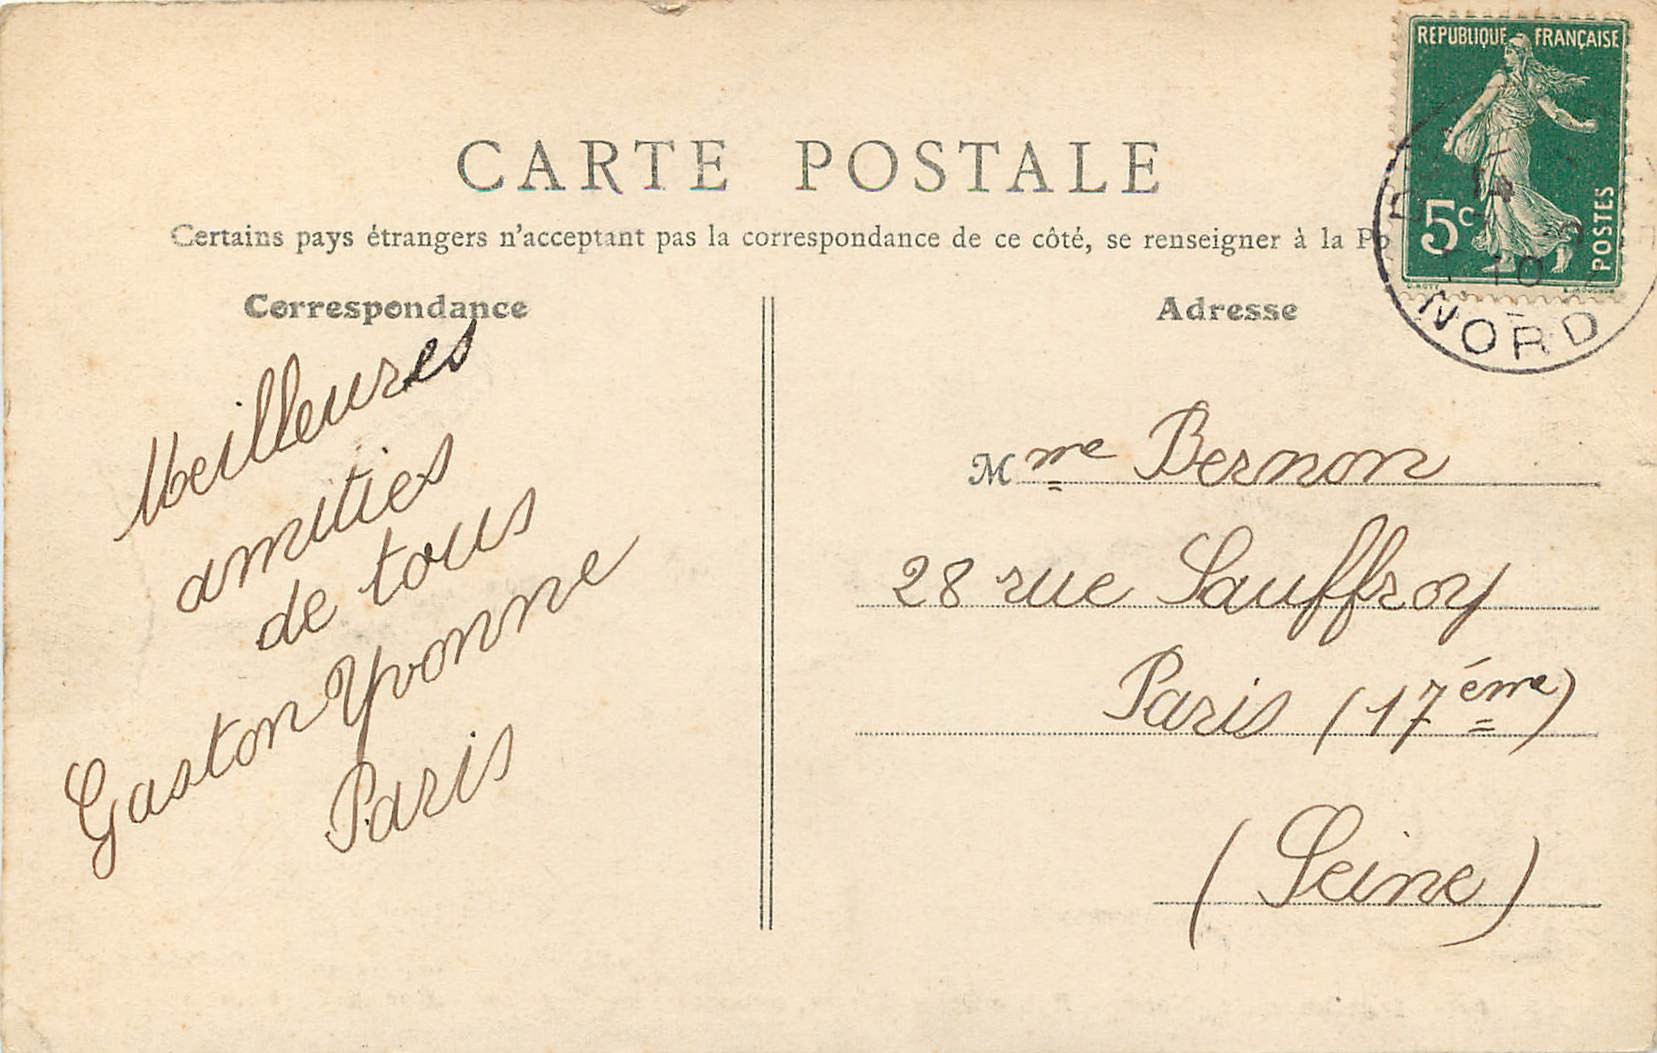 REPUBLIQUE FRANÇAISE
5c
POSTES
14
10
NORD
CARTE POSTALE
Certains pays étrangers n'acceptant pas la correspondance de ce côté, se renseigner à la Po
Correspondance
Meilleures
amitiés
de tous
Gaston Yvonne
Paris
Adresse
Mme Bernon
28 rue Sauffroy
Paris (17éme)
(Seine)